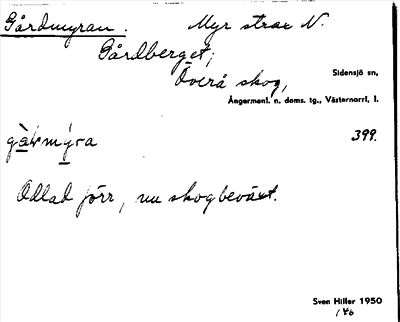 Gårdmyran. Myr strax N.
Gårdberget,
Överå skog,
Sidensjö sn,
Ångermanl. n. doms. tg., Västernorrl, l.
399.
Odlad förr, nu skogbeväxt.
Sven Hiller 1950